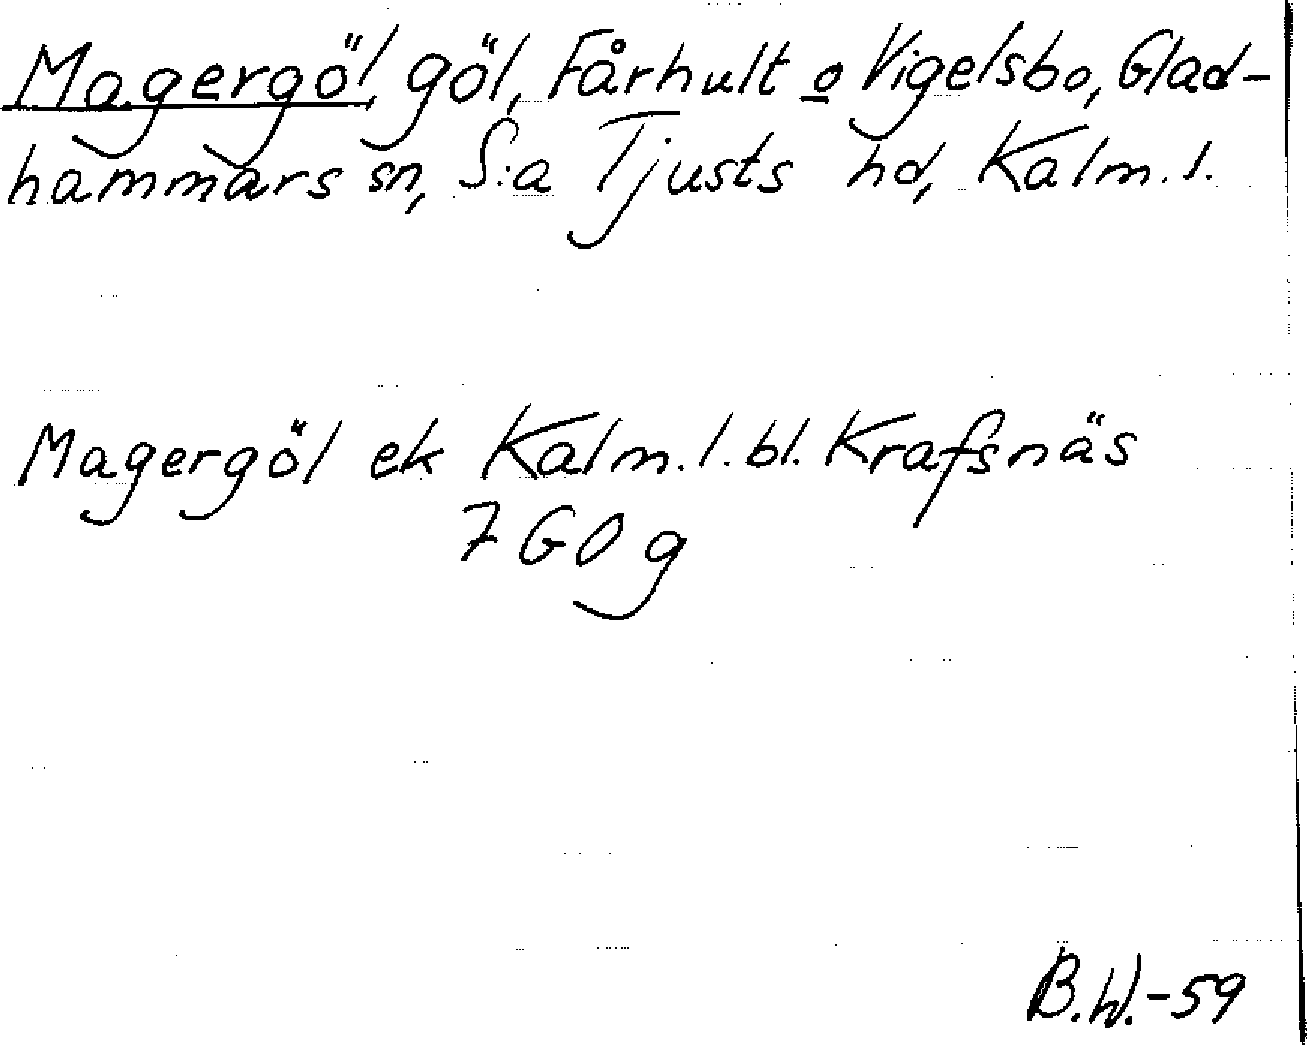 Magergöl, göl, Fårhult o Vigelsbo, Glad-
hammars sn, S:a Tjusts hd, Kalm. l.
Magergöl ek Kalm. l. bl. Krafsnäs
7 G O g
B.W.-59